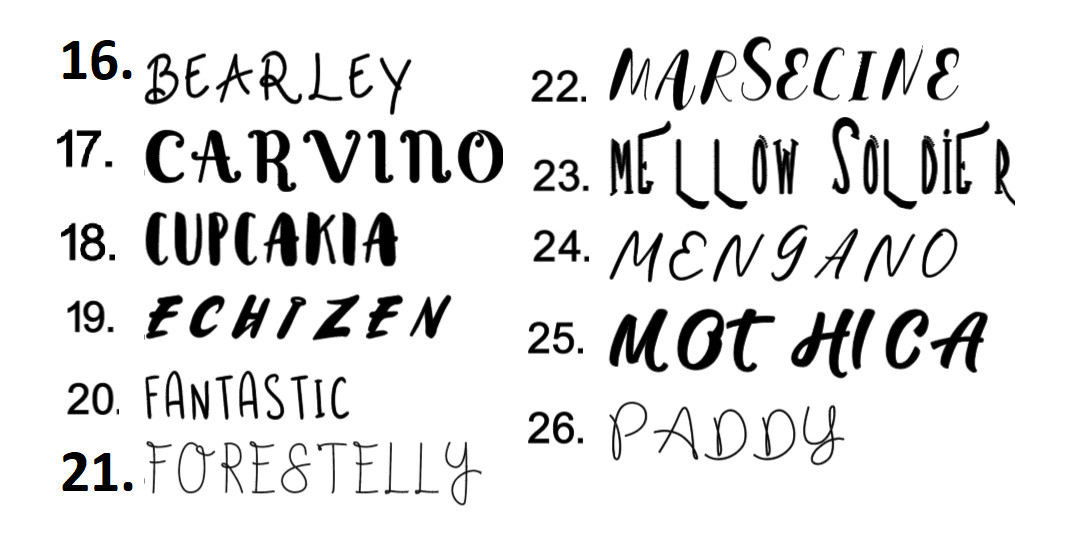 16. BEARLEY
17. CARVINO
18. CUPCAKIA
19. ECHIZEN
20. FANTASTIC
21. FORESTELLY
22. MARSECINE
23. MELLOW SOLDIER
24. MENGANO
25. MOT HICA
26. PADDY